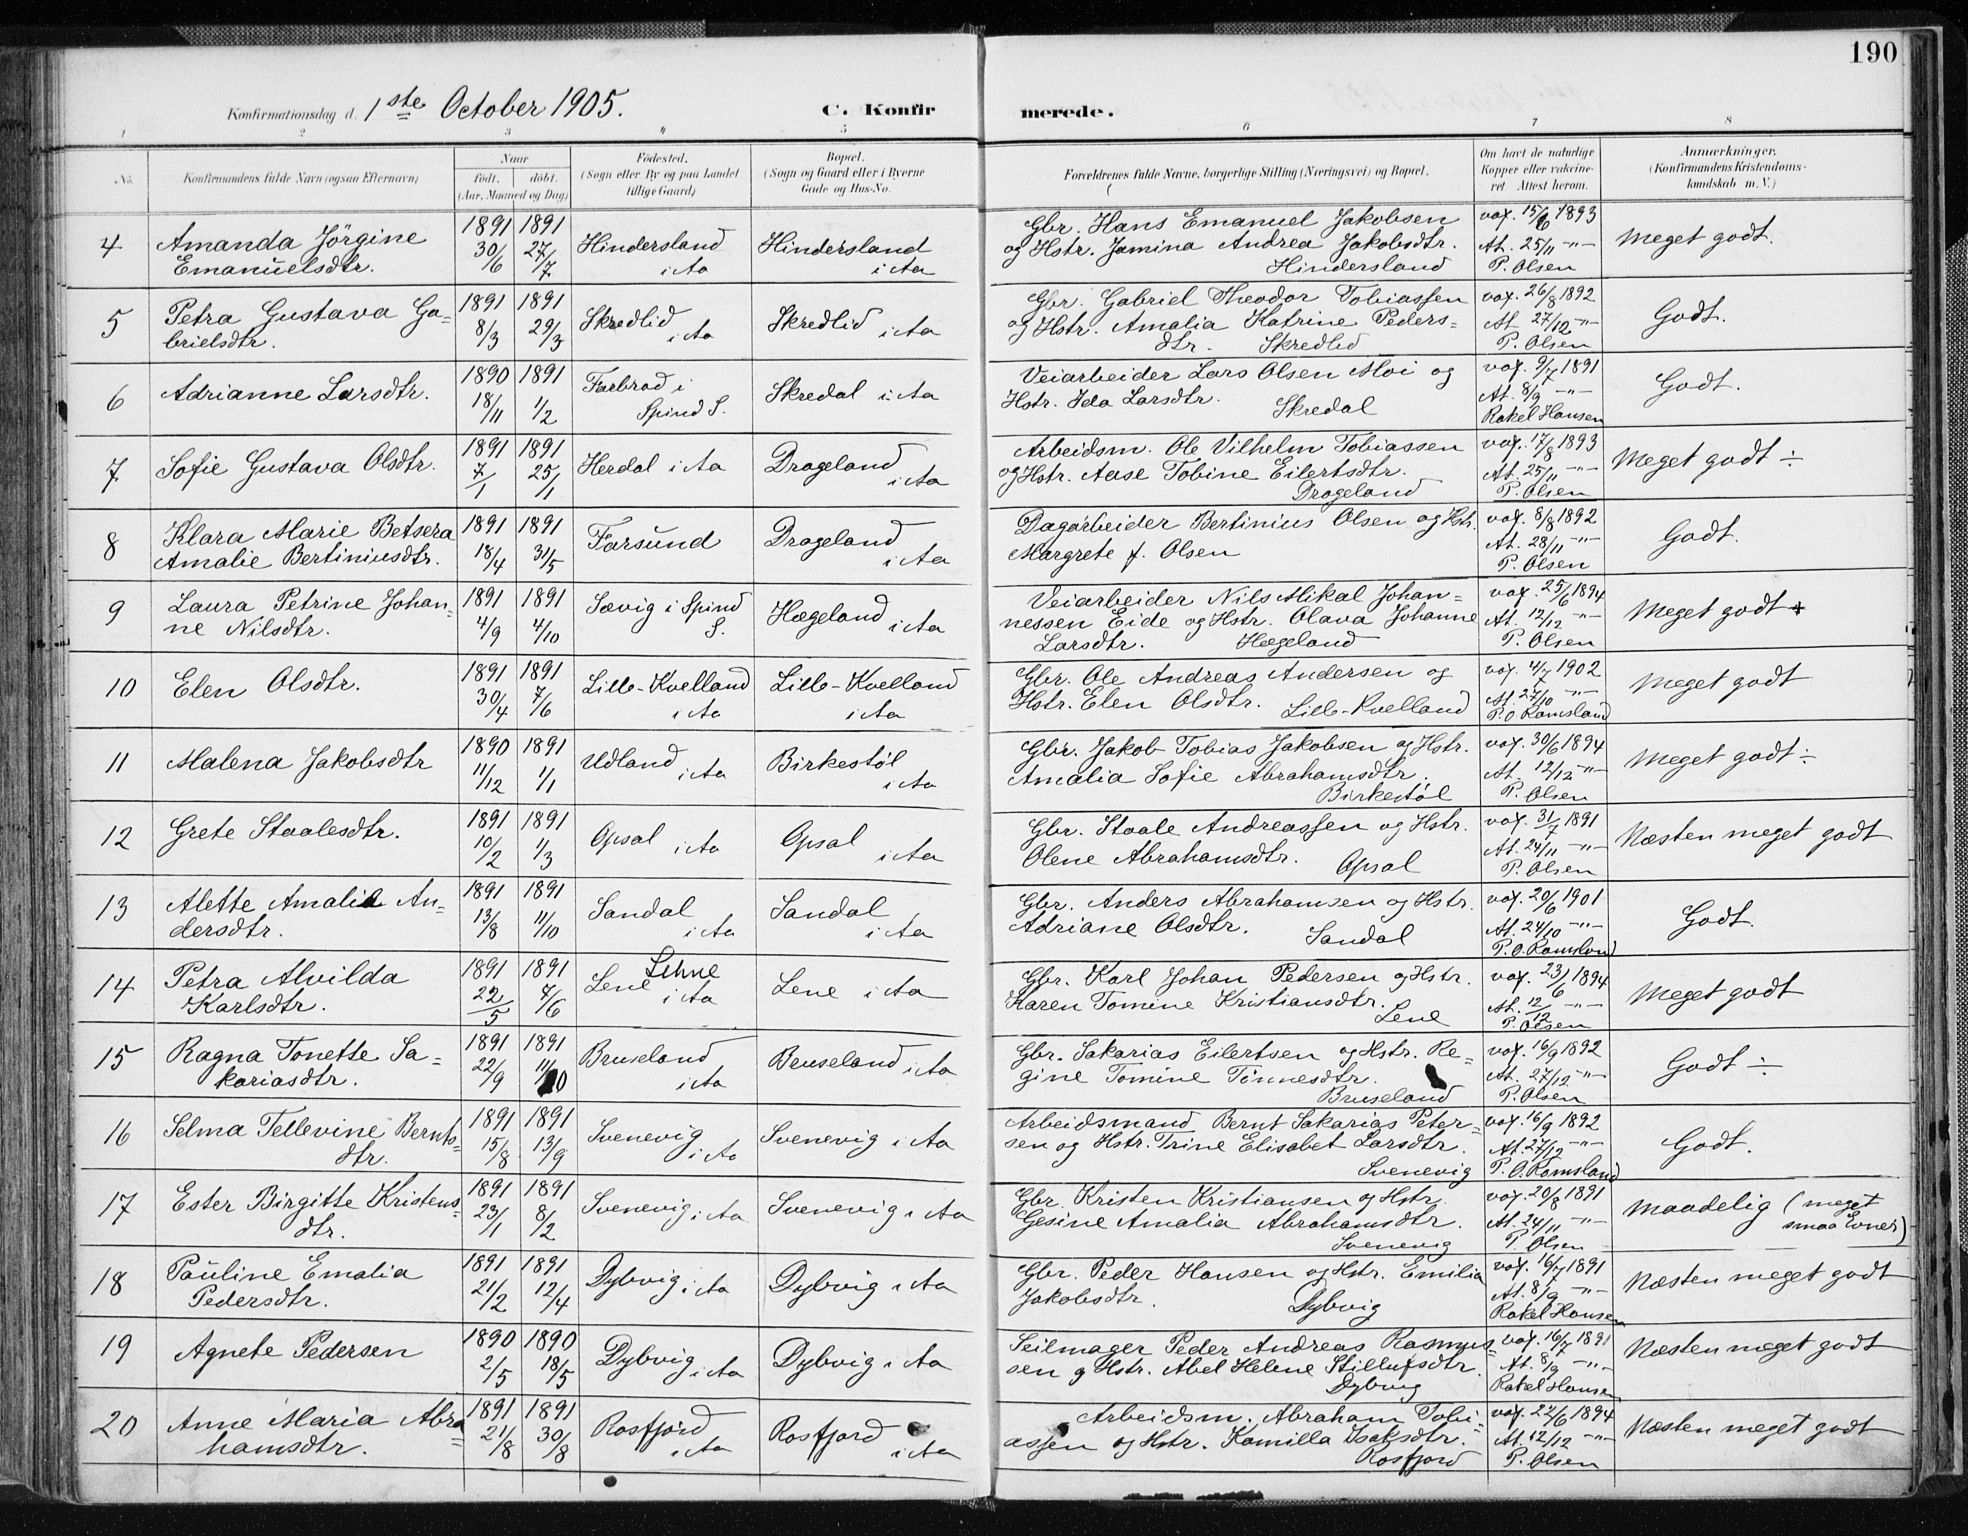 190
Konfirmationsdag d. 1ste October 1905. C. Konfirmerede.
1 2 3 4 5 6 7 8
No. Konfirmandens fulde Navn (ogsaa Efternavn) Naar født. døbt. (Aar, Maaned og Dag) Fødested. (Sogn eller By og paa Landet tillige Gaard) Bopæl. (Sogn og Gaard eller i Byerne Gade og Hus-No. Forældrenes fulde Navne, borgerlige Stilling (Næringsvei) og Bopæl. Om havt de naturlige Kopper eller vakcineret. Attest herom. Anmærkninger. (Konfirmandens Kristendomskundskab m. V.)
4 Amanda Jörgine Emanuelsdtr. 1891 30/6 1891 27/7 Hindersland i Aa Hindersland i Aa Gbr. Hans Emanuel Jakobsen og Hstr. Jamina Andrea Jakobsdtr. Hindersland vax. 15/6 1893 At. 25/11 -"- P. Olsen Meget godt.
5 Petra Gustava Gabrielsdtr. 1891 8/3 1891 29/3 Skredlid i Aa Skredlid i Aa Gbr. Gabriel Theodor Tobiassen og Hstr. Amalia Katrine Pedersdtr. Skredlid vax. 26/8 1892 At 27/12 -"- P. Olsen Godt.
6 Adrianne Larsdtr. 1890 18/11 1891 1/2 Farbrod i Spind S. Skredal i Aa Veiarbeider Lars Olsen Moi og Hstr. Ida Larsdtr. Skredal vax. 9/7 1891 At. 8/9 -"- Rakel Hansen Godt.
7 Sofie Gustava Olsdtr. 1891 7/1 1891 25/1 Herdal i Aa Drageland i Aa Arbeidsm. Ole Vilhelm Tobiassen og Hstr. Aase Tobine Eilertsdtr. Drageland vax. 17/8 1893 At. 25/11 -"- P. Olsen Meget godt ÷
8 Klara Marie Betsera Amalie Bertiniusdtr. 1891 18/4 1891 31/5 Farsund Drageland i Aa Dagarbeider Bertinius Olsen og Hstr. Margrete f. Olsen vax. 8/8 1892 At. 28/11 -"- P. Olsen Godt.
9 Laura Petrine Johanne Nilsdtr. 1891 4/9 1891 4/10 Sævig i Spind S. Hægeland i Aa Veiarbeider Nils Mikal Johannessen Eide og Hstr. Olava Johanne Larsdtr. Hægeland vax. 25/6 1894 At. 12/12 -"- P. Olsen Meget godt +
10 Elen Olsdtr. 1891 30/4 1891 7/6 Lille-Kvelland i Aa Lille-Kvelland i Aa Gbr. Ole Andreas Andersen og Hstr. Elen Olsdtr. Lille-Kvelland vax. 4/7 1902 At. 27/10 -"- P.O Ramsland Meget godt
11 Malena Jakobsdtr 1890 11/12 1891 1/1 Udland i Aa Birkestøl i Aa Gbr. Jakob Tobias Jakobsen og Hstr. Amalia Sofie Abrahamsdtr. Birkestøl vax. 30/6 1894 At. 12/12 -"- P. Olsen Meget godt ÷
12 Grete Staalesdtr. 1891 10/2 1891 1/3 Opsal i Aa Opsal i Aa Gbr. Staale Andreassen og Hstr. Olene Abrahamsdtr. Opsal vax. 31/7 1891 At. 24/11 -"- P. Olsen Næsten meget godt
13 Alette Amalie Andersdtr. 1891 13/8 1891 11/10 Sandal i Aa Sandal i Aa Gbr. Anders Abrahamsen og Hstr. Adriane Olsdtr. Sandal vax. 20/6 1901 At. 24/10 -"- P.O. Ramsland Godt.
14 Petra Alvilda Karlsdtr. 1891 22/5 1891 7/6 Lene Lehne i Aa Lene i Aa Gbr. Karl Johan Pedersen og Hstr. Karen Tomine Kristiansdtr. Lene vax. 23/6 1894 At. 12/12 -"- P. Olsen Meget godt
15 Ragna Tonette Sakariasdtr. 1891 22/9 1891 11/10 Bruseland i Aa Bruseland i Aa Gbr. Sakarias Eilertsen og Hstr. Regine Tomine Tønnesdtr. Bruseland vax. 16/9 1892 At. 27/12 -"- P. Olsen Godt ÷
16 Selma Tellevine Berntsdtr. 1891 15/8 1891 13/9 Svenevig i Aa Svenevig i Aa Arbeidsmand Bernt Sakarias Petersen og Hstr. Trine Elisabet Larsdtr. Svenevig vax. 16/9 1892 At. 27/12 -"- P. O. Ramsland Godt.
17 Ester Birgitte Kristensdtr. 1891 23/1 1891 8/2 Svenevig i Aa Svenevig i Aa Gbr. Kristen Kristiansen og Hstr. Gesine Amalia Abrahamsdtr. Svenevig vax. 20/8 1891 At. 24/11 -"- P. Olsen Maadelig (meget smaa Evner)
18 Pauline Emalia Pedersdtr. 1891 21/2 1891 12/4 Dybvig i Aa Dybvig i Aa Gbr. Peder Hansen og Hstr. Emilia Jakobsdtr. Dybvig vax. 16/7 1891 At. 8/9 -"- Rakel Hansen Næsten meget godt
19 Agnete Pedersen 1890 2/5 1890 18/5 Dybvig i Aa Dybvig i Aa Seilmager Peder Andreas Rasmussen g Hstr. Abel Helene Stillufsdtr. Dybvig vax. 16/7 1891 At. 8/9 -"- Rakel Hansen Næsten meget godt
20 Anne Maria Abrahamsdtr. 1891 21/8 1891 30/8 Rosfjord i Aa Rosfjord i Aa Arbeidsm. Abraham Tobiassen og Hstr. Kamilla Isaksdtr. Rosfjord vax. 22/6 1894 At. 12/12 -"- P. Olsen Næsten meget godt